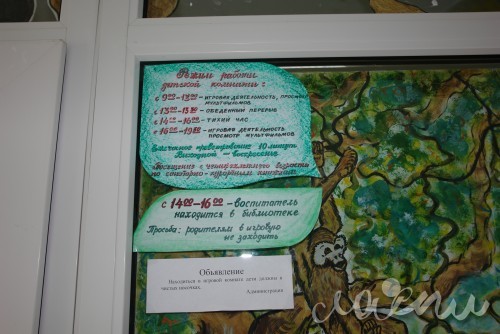 Режим работы
детской комнаты:
с 9 00 – 13 00 – игровая деятельность, просмотр
мультфильмов
с 13 00 – 14 00 – обеденный перерыв
с 14 00 – 16 00 – тихий час
с 16 00 – 19 00 – игровая деятельность
просмотр мультфильмов
Ежечасное проветривание 10 минут
Выходной – воскресенье
Посещения с
возраста
по санаторно-курортным
с 14 00 – 16 00 – воспитатель
находится в библиотеке
Просьба: родителям в игровую
не заходить
Объявление
Находиться в игровой комнате дети должны в
чистых носочках.
Администрация